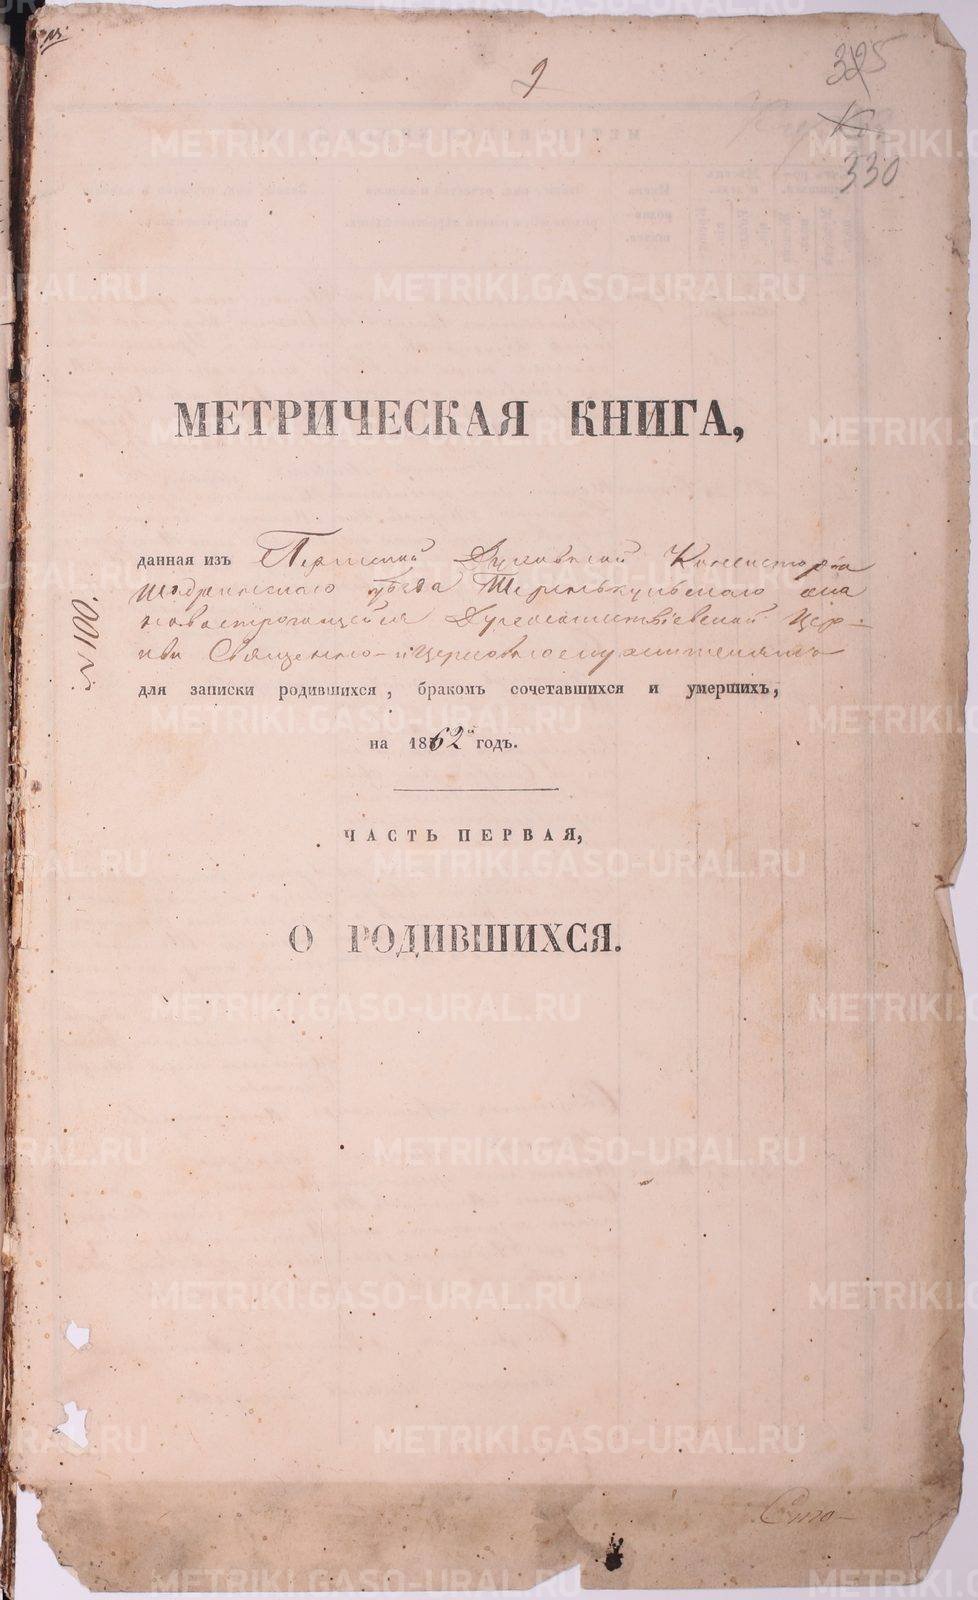 9
325
330
МЕТРИЧЕСКАЯ КНИГА,
данная изъ Пермской Духовной Консисторіи
Шадринскаго уѣзда Теренькульскаго села
новостроющейся Церк-
ви Священно- и церковнослужителямъ
№ 100.
для записки родившихся, бракомъ сочетавшихся и умершихъ,
на 1862й годъ.
ЧАСТЬ ПЕРВАЯ,
О РОДИВШИХСЯ.
Сто-
METRIKI.GASO-URAL.RU